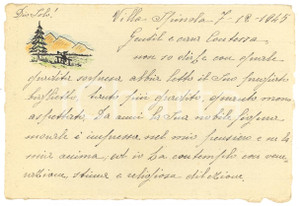 Dio Solo!
Villa Spinola 7-12-1945
Gentil e cara Contessa
non so dirle con quale
gradita sorpresa abbia letto il Suo
biglietto, tanto più gradito, quanto meno
aspettato. Da anni la Sua nobile figura
morale è impressa nel mio pensiero e ne la
mia anima, ed io La contemplo con vene
razione, stima e religiosa dilezione